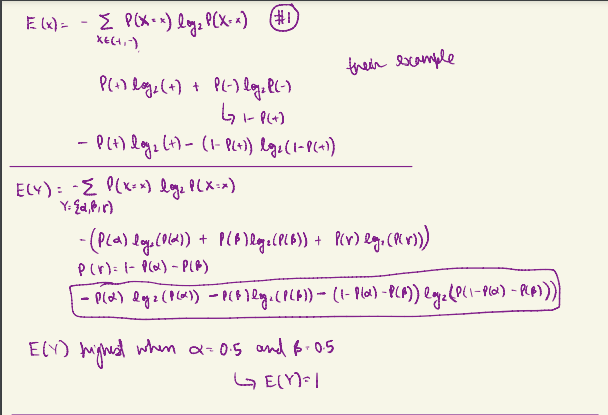 E(x) = - Σ P(X=x) log₂ P(X=x) #1
X∈{+,-}
their example
P(+) log₂(+) + P(-) log₂ P(-)
↳ 1- P(+)
- P(+) log₂(+) - (1- P(+)) log₂(1-P(+))
E(Y) = -Σ P(X=x) log₂ P(X=x)
Y={α,β,r}
-(P(α) log₂(P(α)) + P(β) log₂(P(β)) + P(r) log₂(P(r)))
P(r) = 1- P(α) - P(β)
- P(α) log₂(P(α)) - P(β) log₂(P(β)) - (1- P(α) - P(β)) log₂(P(1-P(α) - P(β)))
E(Y) highest when α = 0.5 and β = 0.5
↳ E(Y)=1